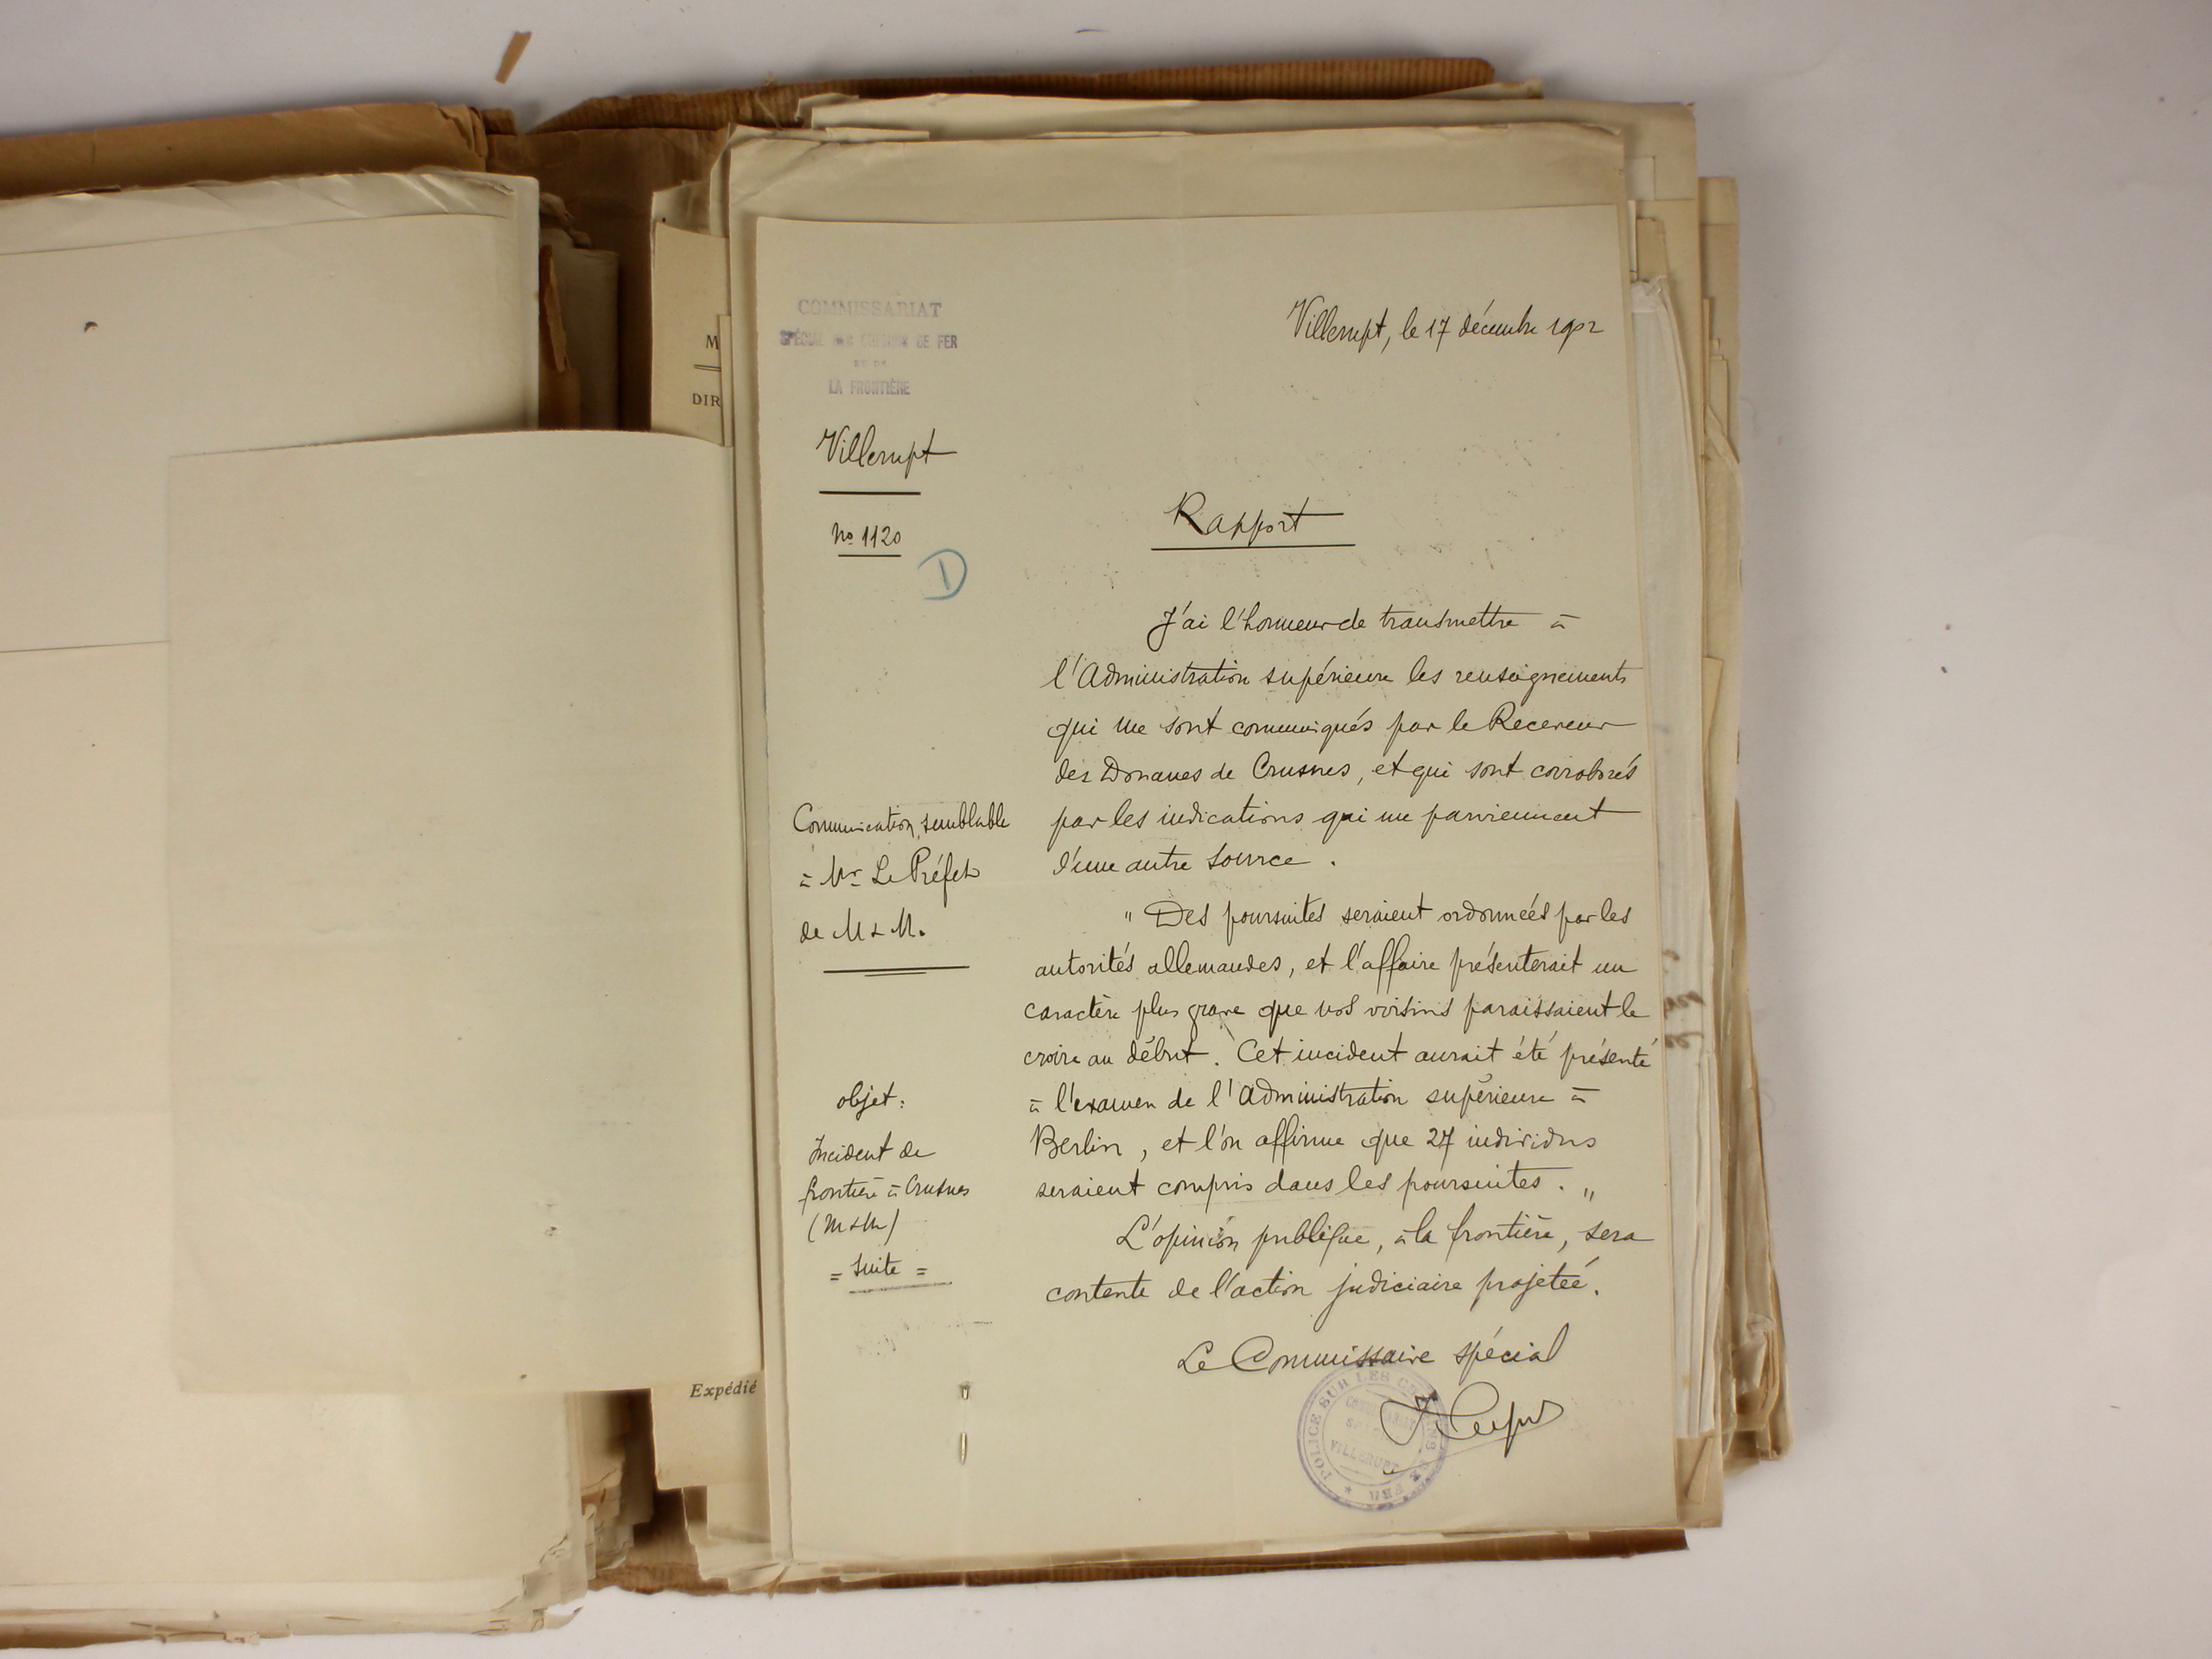 COMMISSARIAT
SPÉCIAL DES CHEMINS DE FER
ET DE
LA FRONTIÈRE
Villerupt
No 1120
D
Villerupt, le 17 décembre 1902
Rapport
J'ai l'honneur de transmettre à
l'Administration supérieure les renseignements
qui me sont communiqués par le Receveur
des Douanes de Crusnes, et qui sont corroborés
par les indications qui me parviennent
d'une autre source.
"Des poursuites seraient ordonnées par les
autorités allemandes, et l'affaire présenterait un
caractère plus grave que nos voisins paraissaient le
croire au début. Cet incident aurait été présenté
à l'examen de l'Administration supérieure à
Berlin, et l'on affirme que 27 individus
seraient compris dans les poursuites."
L'opinion publique, à la frontière, sera
contente de l'action judiciaire projetée.
Le Commissaire spécial
Communication semblable
à Mr Le Préfet
de M & M.
objet:
Incident de
frontière à Crusnes
(M & M)
= Suite =
POLICE SUR LES CHEMINS DE FER
COMMISSARIAT
VILLERUPT
M
DIR
Expédié